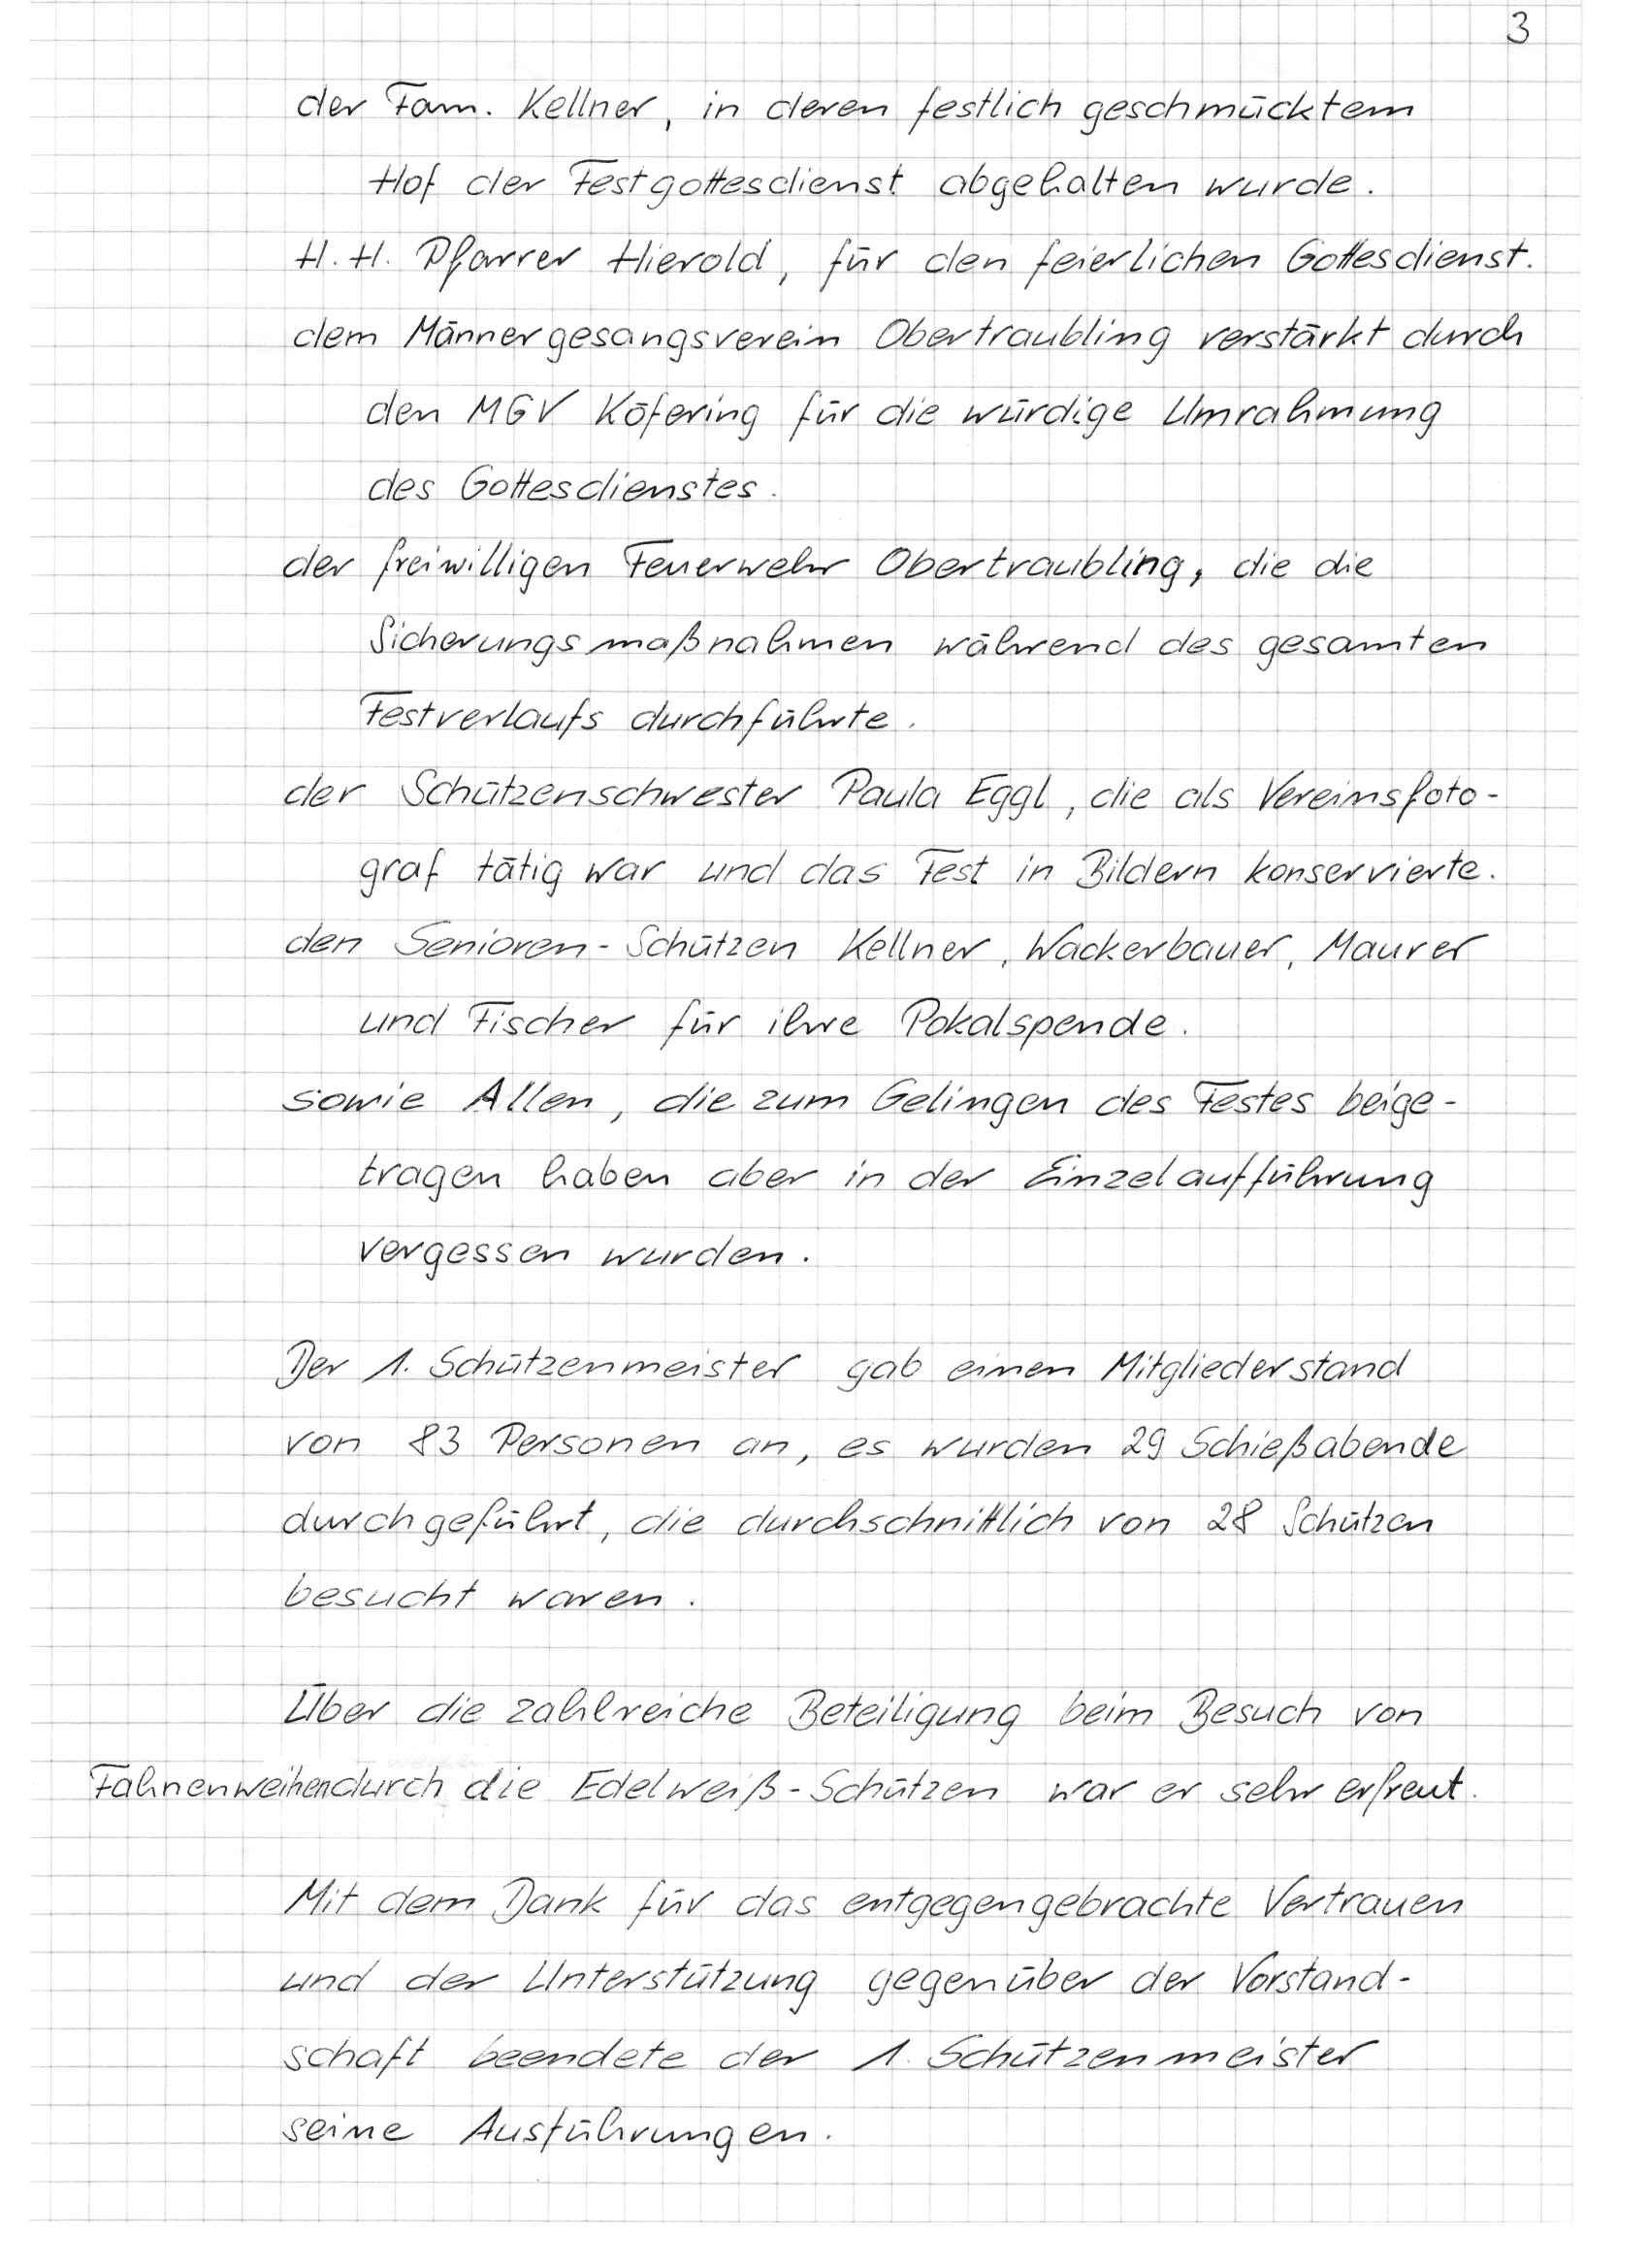 3
der Fam. Kellner, in deren festlich geschmücktem
Hof der Festgottesdienst abgehalten wurde.
H. H. Pfarrer Hierold, für den feierlichen Gottesdienst.
dem Männergesangsverein Obertraubling verstärkt durch
den MGV Köfering für die würdige Umrahmung
des Gottesdienstes.
der freiwilligen Feuerwehr Obertraubling, die die
Sicherungsmaßnahmen während des gesamten
Festverlaufs durchführte.
der Schützenschwester Paula Eggl, die als Vereinsfoto-
graf tätig war und das Fest in Bildern konservierte.
den Senioren-Schützen Kellner, Wackerbauer, Maurer
und Fischer für ihre Pokalspende.
sowie Allen, die zum Gelingen des Festes beige-
tragen haben aber in der Einzelaufführung
vergessen wurden.
Der 1. Schützenmeister gab einen Mitgliederstand
von 83 Personen an, es wurden 29 Schießabende
durchgeführt, die durchschnittlich von 28 Schützen
besucht waren.
Über die zahlreiche Beteiligung beim Besuch von
Fahnenweihen durch die Edelweiß-Schützen war er sehr erfreut.
Mit dem Dank für das entgegengebrachte Vertrauen
und der Unterstützung gegenüber der Vorstand-
schaft beendete der 1. Schützenmeister
seine Ausführungen.